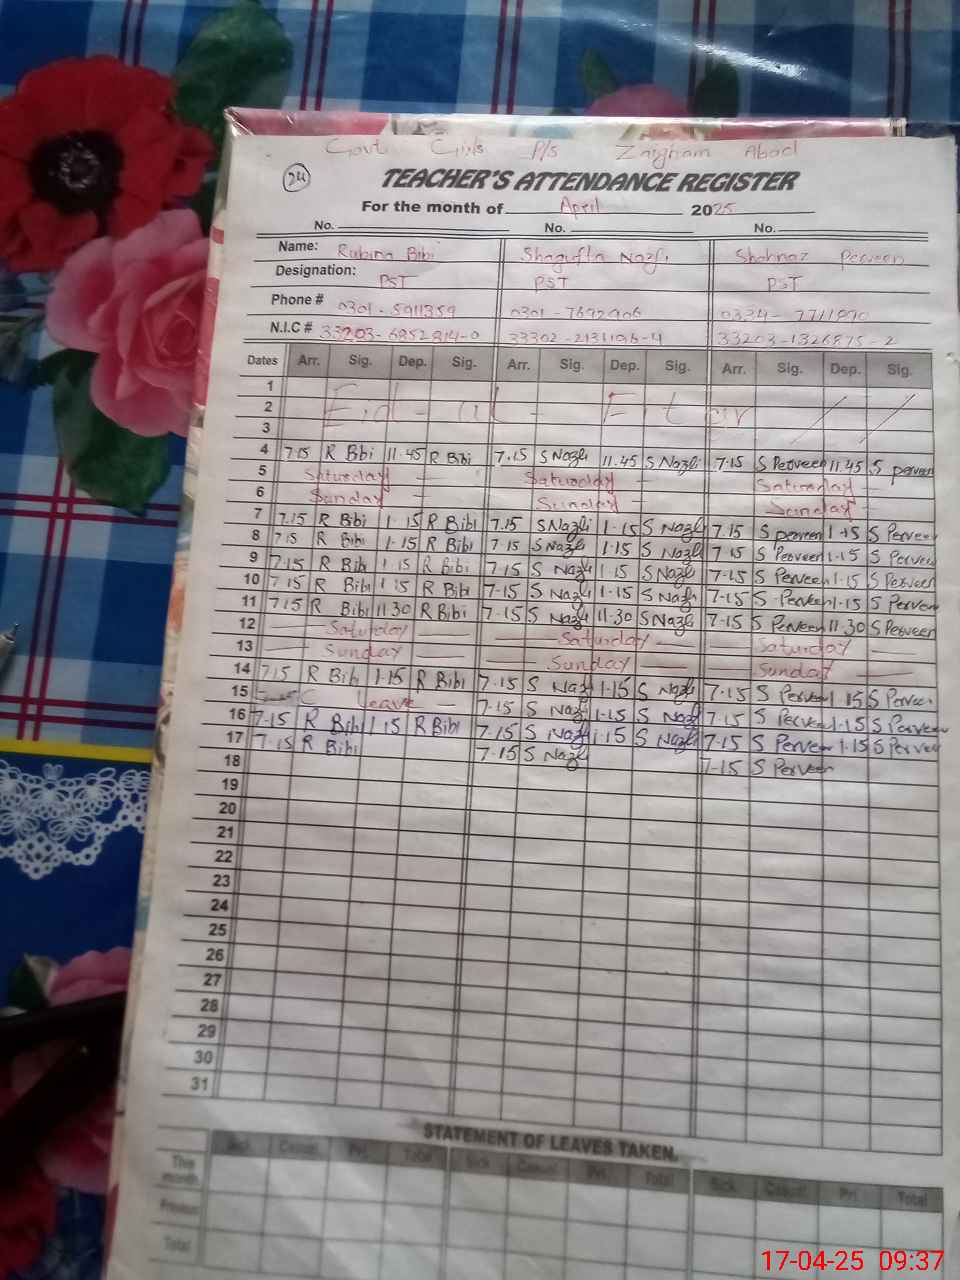 Govt Girls P/S Zaigham Abad
24
TEACHER'S ATTENDANCE REGISTER
For the month of April 2025
No. No. No.
Name: Rubina Bibi Shagufta Nazli Shahnaz Perveen
Designation: PST PST PST
Phone # 0301-5911359 0301-7692906 0334-7711890
N.I.C # 33203-6852814-0 33302-2131196-4 33203-1326875-2
Dates Arr. Sig. Dep. Sig. Arr. Sig. Dep. Sig. Arr. Sig. Dep. Sig.
1
2 Eid-ul-Fiter
3
4 7.15 R Bibi 11.45 R Bibi 7.15 S Nazli 11.45 S Nazli 7.15 S Perveen 11.45 S Perveen
5 Saturday Saturday Saturday
6 Sunday Sunday Sunday
7 7.15 R Bibi 1.15 R Bibi 7.15 S Nazli 1.15 S Nazli 7.15 S Perveen 1.15 S Perveen
8 7.15 R Bibi 1.15 R Bibi 7.15 S Nazli 1.15 S Nazli 7.15 S Perveen 1.15 S Perveen
9 7.15 R Bibi 1.15 R Bibi 7.15 S Nazli 1.15 S Nazli 7.15 S Perveen 1.15 S Perveen
10 7.15 R Bibi 1.15 R Bibi 7.15 S Nazli 1.15 S Nazli 7.15 S Perveen 1.15 S Perveen
11 7.15 R Bibi 11.30 R Bibi 7.15 S Nazli 11.30 S Nazli 7.15 S Perveen 11.30 S Perveen
12 Saturday Saturday Saturday
13 Sunday Sunday Sunday
14 7.15 R Bibi 1.15 R Bibi 7.15 S Nazli 1.15 S Nazli 7.15 S Perveen 1.15 S Perveen
15 C Leave 7.15 S Nazli 1.15 S Nazli 7.15 S Perveen 1.15 S Perveen
16 7.15 R Bibi 1.15 R Bibi 7.15 S Nazli 1.15 S Nazli 7.15 S Perveen 1.15 S Perveen
17 7.15 R Bibi 7.15 S Nazli 7.15 S Perveen
18
19
20
21
22
23
24
25
26
27
28
29
30
31
STATEMENT OF LEAVES TAKEN.
Sick Casual Pri. Total Sick Casual Pri. Total Sick Casual Pri. Total
This month
Previous
Total
17-04-25 09:37